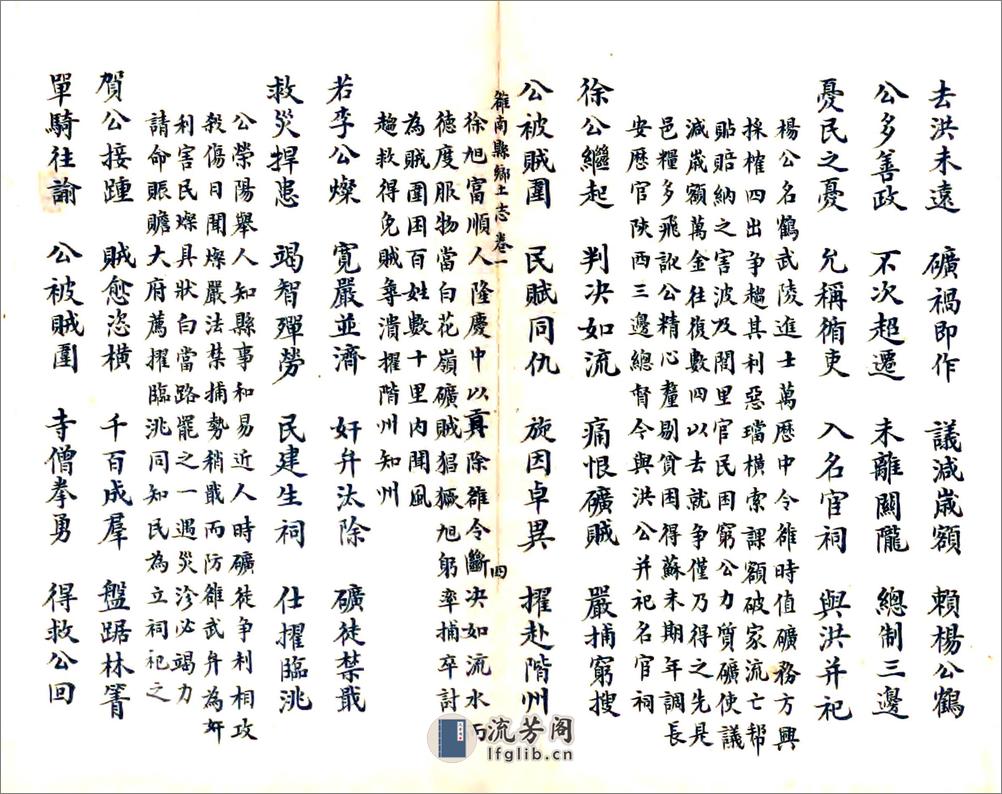 去洪未遠　礦禍即作　議減歲額　賴楊公鶴
公多善政　不次超遷　未離關隴　總制三邊
憂民之憂　允稱循吏　入名宦祠　與洪并祀
楊公名鶴武陵進士萬歷中令雒時值礦務方興
採榷四出爭趨其利惡璫橫索課額破家流亡幫
貼賠納之害波及閭里官民困窮公力質礦使議
減歲額萬金往復數四以去就爭僅乃得之先是
邑糧多飛詭公精心釐剔貧困得蘇未期年調長
安歷官陝西三邊總督今與洪公并祀名宦祠
徐公繼起　判决如流　痛恨礦賊　嚴捕窮搜
公被賊圍　民賦同仇　旋因卓異　擢赴階州
雒南縣鄉土志　卷一　四
徐旭富順人隆慶中以貢除雒令斷决如流水
德度服物當白花嶺礦賊猖獗旭躬率捕卒討
為賊圍困百姓數十里内聞風
趨救得免賊尋潰擢階州知州
若李公燦　寬嚴並濟　奸弁汰除　礦徒禁戢
救災捍患　竭智殫勞　民建生祠　仕擢臨洮
公榮陽舉人知縣事和易近人時礦徒爭利相攻
殺傷日聞燦嚴法禁捕勢稍戢而防雒武弁為奸
利害民燦具狀白當路罷之一遇災沴必竭力
請命賑贍大府薦擢臨洮同知民為立祠祀之
賀公接踵　賊愈恣橫　千百成羣　盤踞林箐
單騎往諭　公被賊圍　寺僧拳勇　得救公回
流芳阁
lfglib.cn